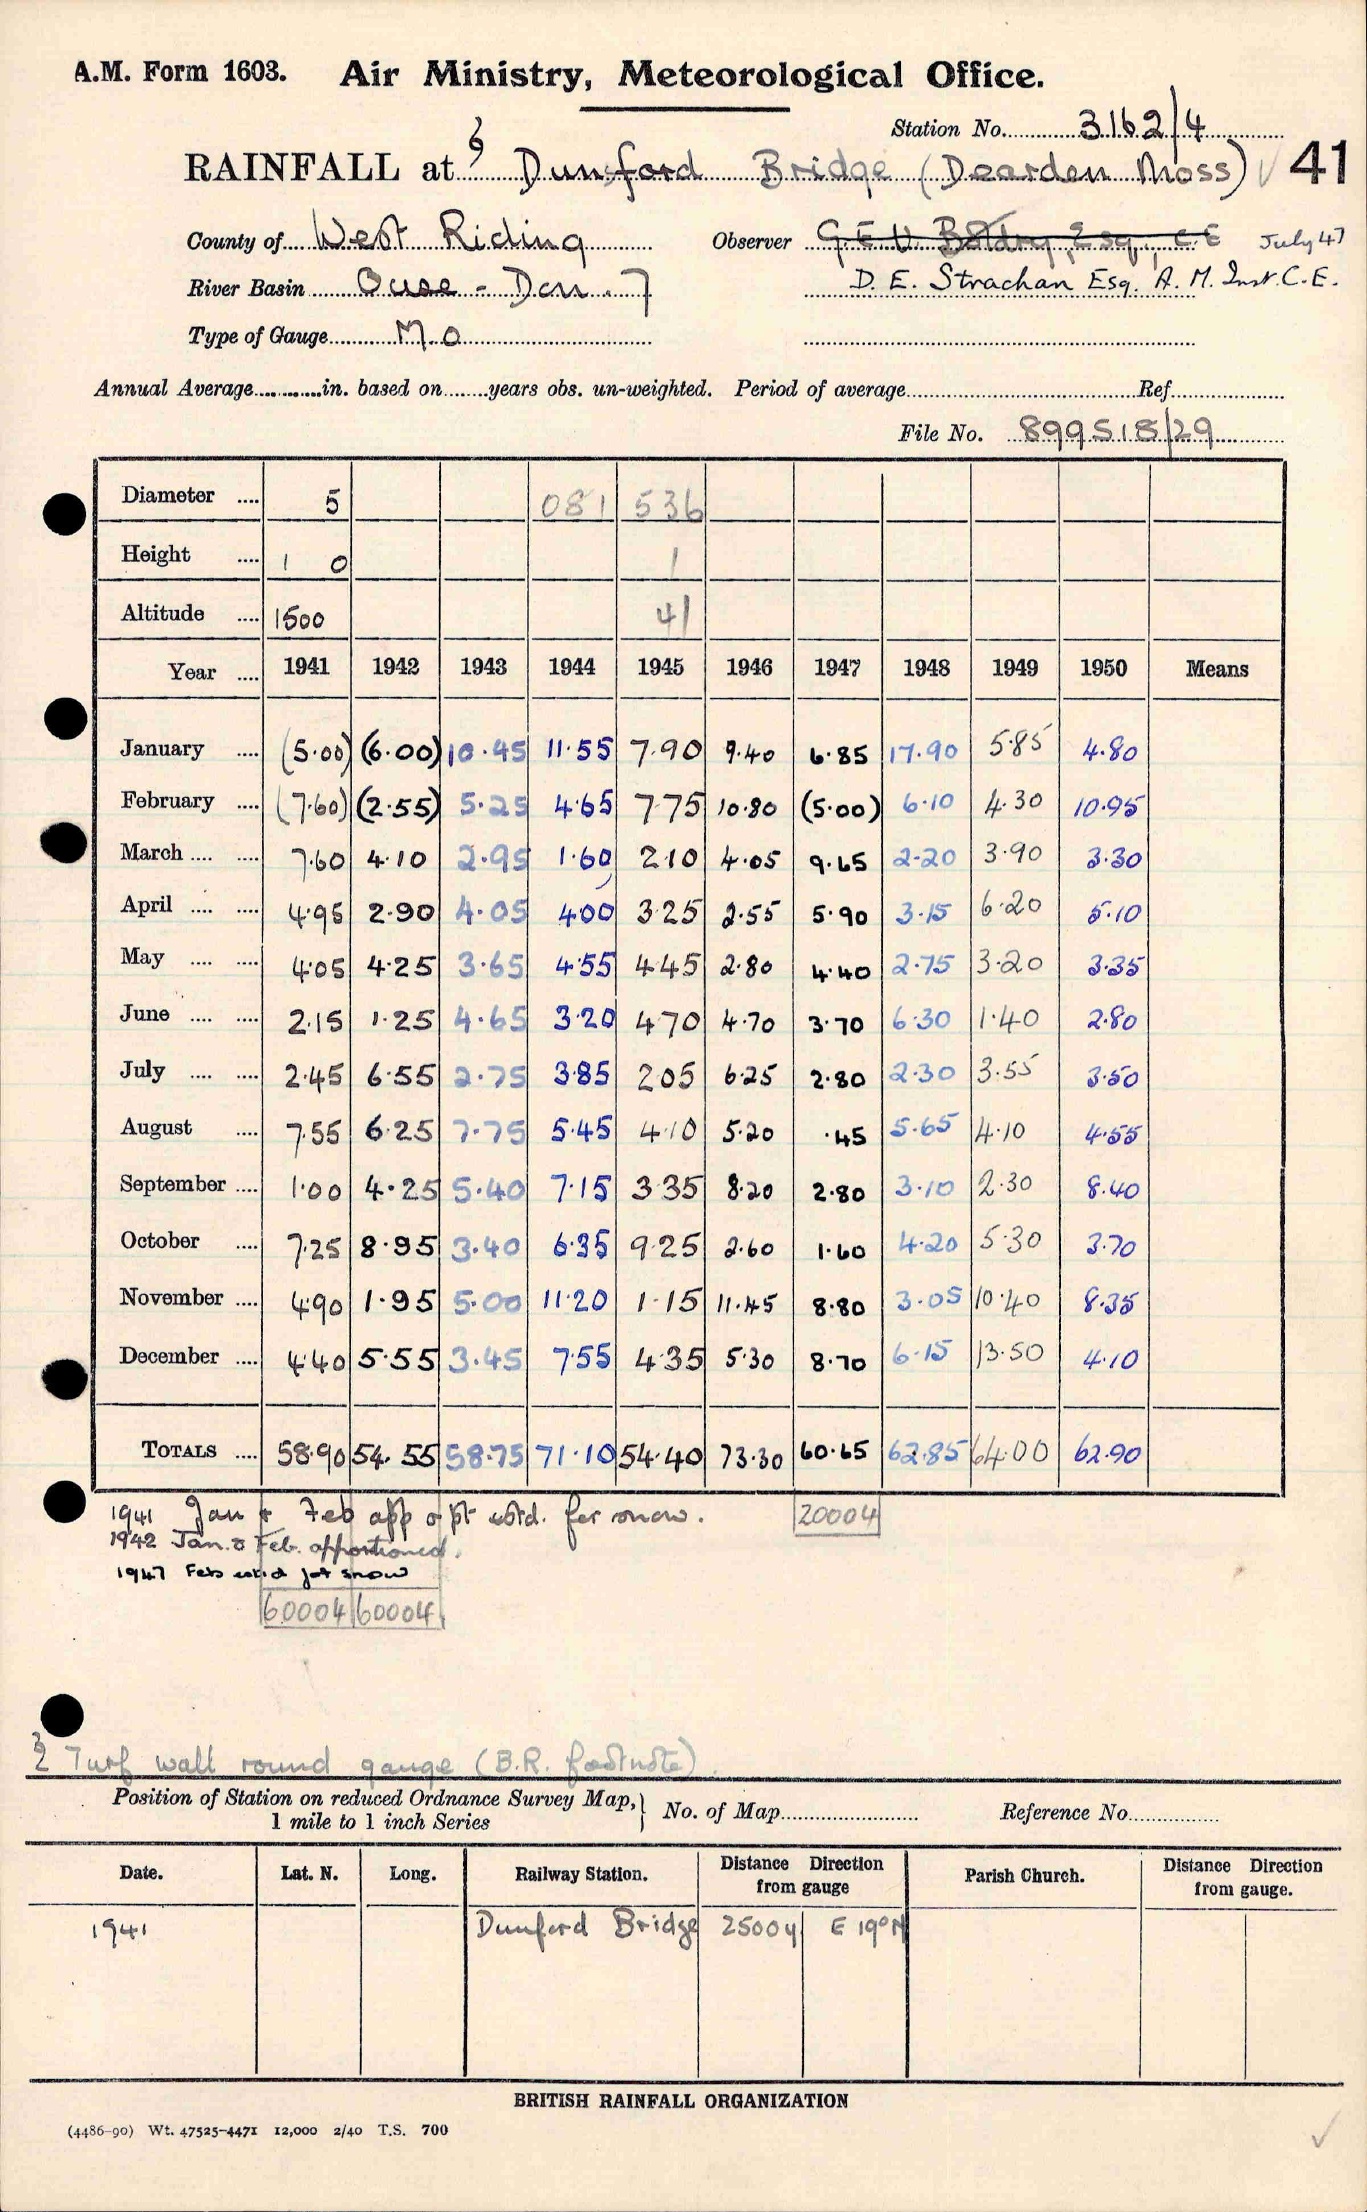 A.M. Form 1603. Air Ministry, Meteorological Office.
Station No. 3162/4
RAINFALL at Dunford Bridge (Dearden Moss) 41
County of West Riding Observer G.E.V. Boldry, Esq., C.E July 47
River Basin Ouse - Don. 7 D. E. Strachan Esq. A. M. Inst. C.E.
Type of Gauge M.O
Annual Average in. based on years obs. un-weighted. Period of average Ref.
File No. 899518/29
Diameter 5 081 536
Height 1 0 1
Altitude 1500 41
Year 1941 1942 1943 1944 1945 1946 1947 1948 1949 1950 Means
January (5.00) (6.00) 10.45 11.55 7.90 9.40 6.85 17.90 5.85 4.80
February (7.60) (2.55) 5.25 4.65 7.75 10.80 (5.00) 6.10 4.30 10.95
March 7.60 4.10 2.95 1.60 2.10 4.05 9.65 2.20 3.90 3.30
April 4.95 2.90 4.05 4.00 3.25 2.55 5.90 3.15 6.20 5.10
May 4.05 4.25 3.65 4.55 4.45 2.80 4.40 2.75 3.20 3.35
June 2.15 1.25 4.65 3.20 4.70 4.70 3.70 6.30 1.40 2.80
July 2.45 6.55 2.75 3.85 2.05 6.25 2.80 2.30 3.55 3.50
August 7.55 6.25 7.75 5.45 4.10 5.20 .45 5.65 4.10 4.55
September 1.00 4.25 5.40 7.15 3.35 8.20 2.80 3.10 2.30 8.40
October 7.25 8.95 3.40 6.35 9.25 2.60 1.60 4.20 5.30 3.70
November 4.90 1.95 5.00 11.20 1.15 11.45 8.80 3.05 10.40 8.35
December 4.40 5.55 3.45 7.55 4.35 5.30 8.70 6.15 13.50 4.10
TOTALS 58.90 54.55 58.75 71.10 54.40 73.30 60.65 62.85 64.00 62.90
1941 Jan & Feb app & pt estd. for snow. 20004
1942 Jan. & Feb. apportioned.
1947 Feb estd for snow
60004 60004
Turf wall round gauge (B.R. footnote).
Position of Station on reduced Ordnance Survey Map, No. of Map Reference No.
1 mile to 1 inch Series
Date. Lat. N. Long. Railway Station. Distance Direction from gauge Parish Church. Distance Direction from gauge.
1941 Dunford Bridge 2500y E 19° N
BRITISH RAINFALL ORGANIZATION
(4486-90) Wt. 47525-4471 12,000 2/40 T.S. 700